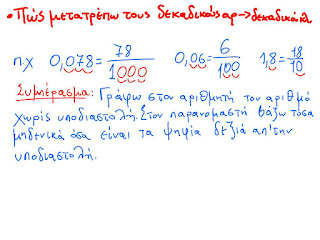 • Πώς μετατρέπω τους δεκαδικούς αρ → δεκαδικά κλ
π.χ 0,078 = 78/1000 0,06 = 6/100 1,8 = 18/10
Συμπέρασμα: Γράφω στον αριθμητή τον αριθμό
χωρίς υποδιαστολή. Στον παρανομαστή βάζω τόσα
μηδενικά όσα είναι τα ψηφία δεξιά απ'την
υποδιαστολή.